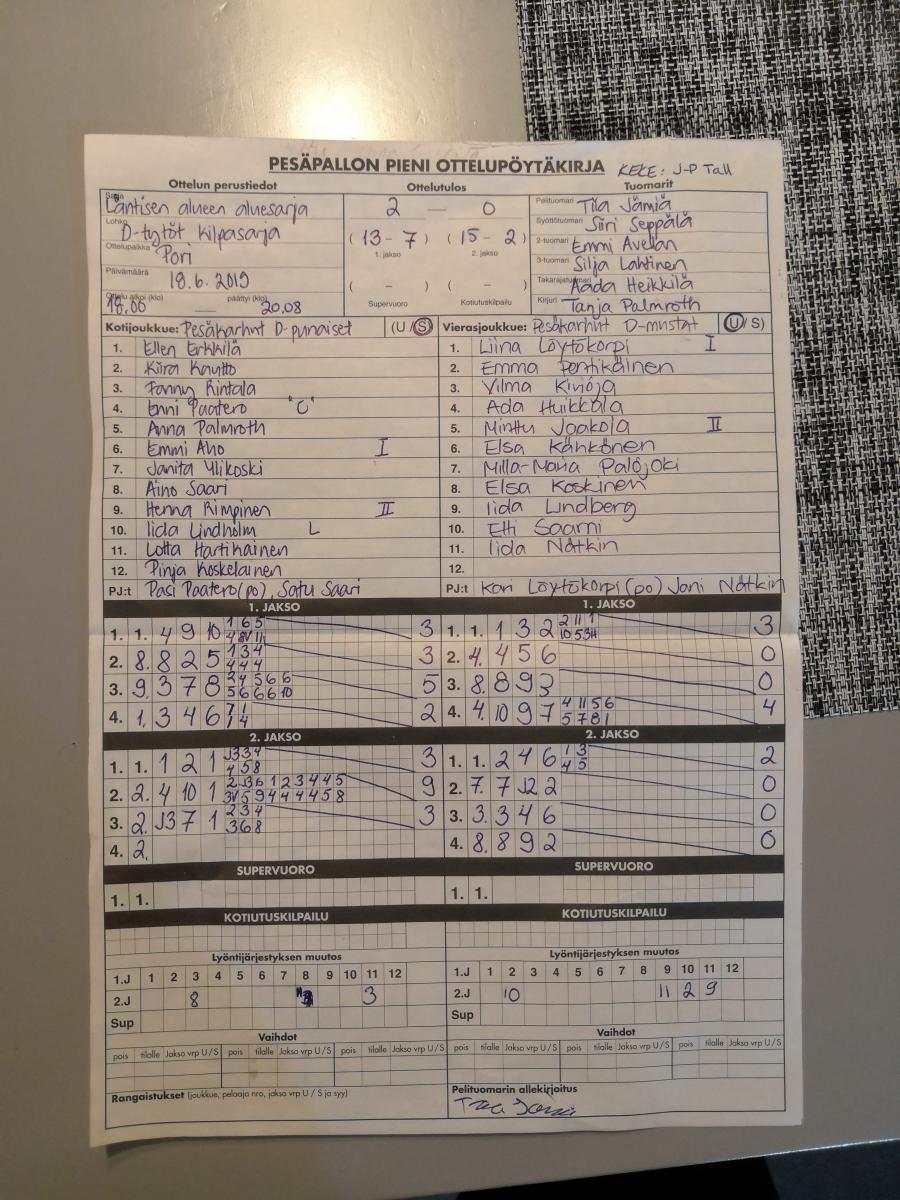 PESÄPALLON PIENI OTTELUPÖYTÄKIRJA KEKE: J-P Tall
Ottelun perustiedot Ottelutulos Tuomarit
Sarja Läntisen alueen aluesarja 2 — 0 Pelituomari Tiia Jämiä
Lohko D-tytöt kilpasarja (13 - 7) (15 - 2) Syöttötuomari Siiri Seppälä
1. jakso 2. jakso 2-tuomari Emmi Avellan
Ottelupaikka Pori 3-tuomari Silja Lahtinen
Päivämäärä 18.6.2019 ( - ) ( - ) Takarajatuomari Aada Heikkilä
Ottelu alkoi (klo) 18.00 — päättyi (klo) 20.08 Supervuoro Kotiutuskilpailu Kirjuri Tanja Palmroth
Kotijoukkue: Pesäkarhut D-punaiset (U / S) Vierasjoukkue: Pesäkarhut D-mustat (U / S)
1. Ellen Erkkilä 1. Liina Löytökorpi I
2. Kiira Knuutto 2. Emma Pentikäinen
3. Fanny Rintala 3. Vilma Kivioja
4. Enni Paatero "C" 4. Ada Huikkala
5. Anna Palmroth 5. Minttu Jaakola II
6. Emmi Aho I 6. Elsa Känkönen
7. Janita Ylikoski 7. Milla-Maria Palojoki
8. Aino Saari 8. Elsa Koskinen
9. Henna Rimpinen II 9. Iida Lindberg
10. Iida Lindholm L 10. Etti Saarni
11. Lotta Hartikainen 11. Iida Nätkin
12. Pinja Koskelainen 12.
PJ:t Pasi Paatero(po), Satu Saari PJ:t Kari Löytökorpi (po) Jani Nätkin
1. JAKSO 1. JAKSO
1. 1. 4 9 10 1 6 5 3 1. 1. 1 3 2 2 11 1 3
2. 8. 8 2 5 1 3 4 3 2. 4. 4 5 6 0
4 4 4
3. 9. 3 7 8 5 3. 8. 8 9 3 0
5 6 6 6 10
4. 1. 3 4 6 7 1 2 4. 4. 10 9 7 4 11 5 6 4
1 4 5 7 8 1
2. JAKSO 2. JAKSO
1. 1. 1 2 1 J3 3 4 3 1. 1. 2 4 6 1 3 2
4 5 8 4 5
2. 2. 4 10 1 9 2. 7. 7 J2 2 0
3. 2. J3 7 1 2 3 4 3 3. 3. 3 4 6 0
3 6 8
4. 2. 4. 8. 8 9 2 0
SUPERVUORO SUPERVUORO
1. 1. 1. 1.
KOTIUTUSKILPAILU KOTIUTUSKILPAILU
Lyöntijärjestyksen muutos Lyöntijärjestyksen muutos
1.J 1 2 3 4 5 6 7 8 9 10 11 12 1.J 1 2 3 4 5 6 7 8 9 10 11 12
2.J 8 3 2.J 10 11 2 9
Sup Sup
Vaihdot Vaihdot
pois tilalle Jakso vrp U/S pois tilalle Jakso vrp U/S pois tilalle Jakso vrp U/S pois tilalle Jakso vrp U/S
Rangaistukset (joukkue, pelaaja nro, jakso vrp U / S ja syy) Pelituomarin allekirjoitus